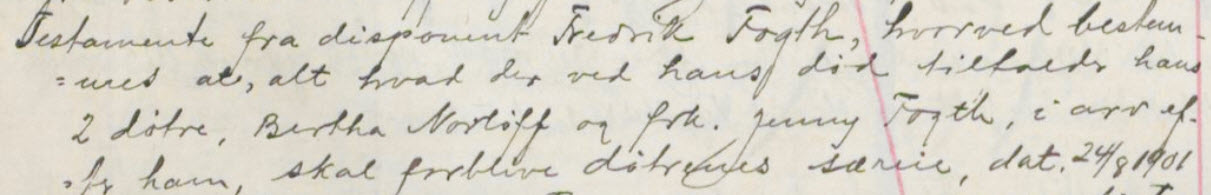 Testamente fra disponent Fredrik Fogth, hvorved bestem-
=mes at, alt hvad der ved hans død tilfalder hans
2 døtre, Bertha Norløff og frk. Jenny Fogth, i arv ef-
=ter ham, skal forblive døtrenes særeie, dat. 24/8 1901